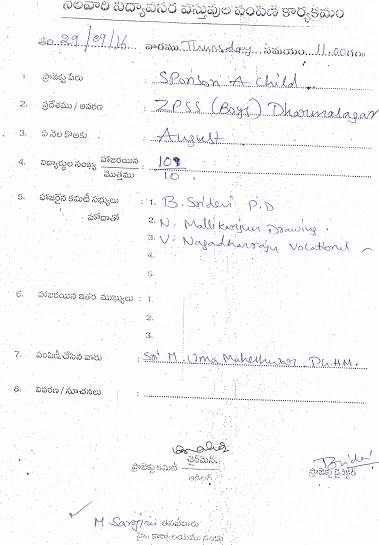 నెలవారి విద్యావసర వస్తువుల పంపిణి కార్యక్రమం
తేది: 29/09/16 వారము Thursday సమయం 11.00గం
1. ప్రాజెక్టు పేరు : SPonson A Child
2. ప్రదేశము / ఆవరణ : ZPSS (Boys) Dharmasagar
3. ఏ నెల కొఱకు : August
4. విద్యార్థుల సంఖ్య హాజరయిన : 10
మొత్తము 10
5. హాజరైన కమిటీ సభ్యులు : 1. B. Sridevi P.D
హోదాతో 2. N. Mallikarjun Drawing.
3. V. Nagadhararaju Vocational
4.
5.
6. హాజరయిన ఇతర ముఖ్యులు : 1.
2.
3.
7. పంపిణీ చేసిన వారు : Sri M. Uma Maheshwar
8. వివరణ / సూచనలు :
ప్రాజెక్టు కమిటీ చైర్మెన్
ఆడిటర్
Bridevi
ప్రాజెక్టు డైరెక్టర్
M Sarojini తనిఖీదారు
కార్యాలయము నందు